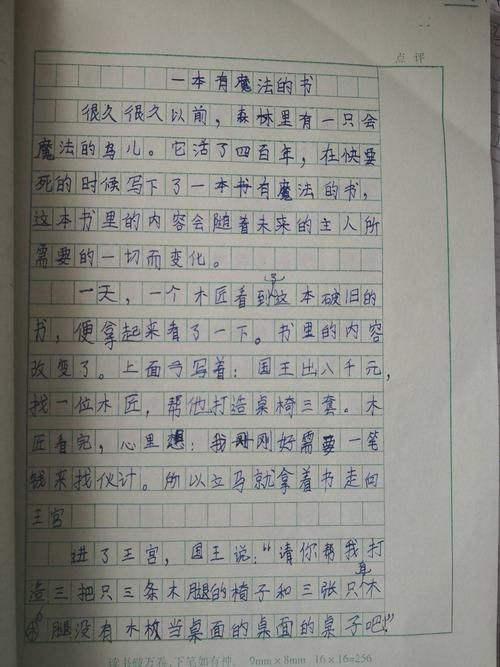 点评
一本有魔法的书
很久很久以前，森林里有一只会
魔法的鸟儿。它活了四百年，在快要
死的时候写下了一本书有魔法的书，
这本书里的内容会随着未来的主人所
需要的一切而变化。
一天，一个木匠看到了这本破旧的
书，便拿起来看了一下。书里的内容
改变了。上面写着：国王出八千元，
找一位木匠，帮他打造桌椅三套。木
匠看完，心里想：我刚好需要一笔
钱来找伙计。所以立马就拿着书走向
王宫
进了王宫，国王说：“请你帮我打
造三把只三条木腿的椅子和三张只木
腿没有木板当桌面的桌面的桌子吧！”
读书破万卷，下笔如有神。 9mm×8mm 16×16=256